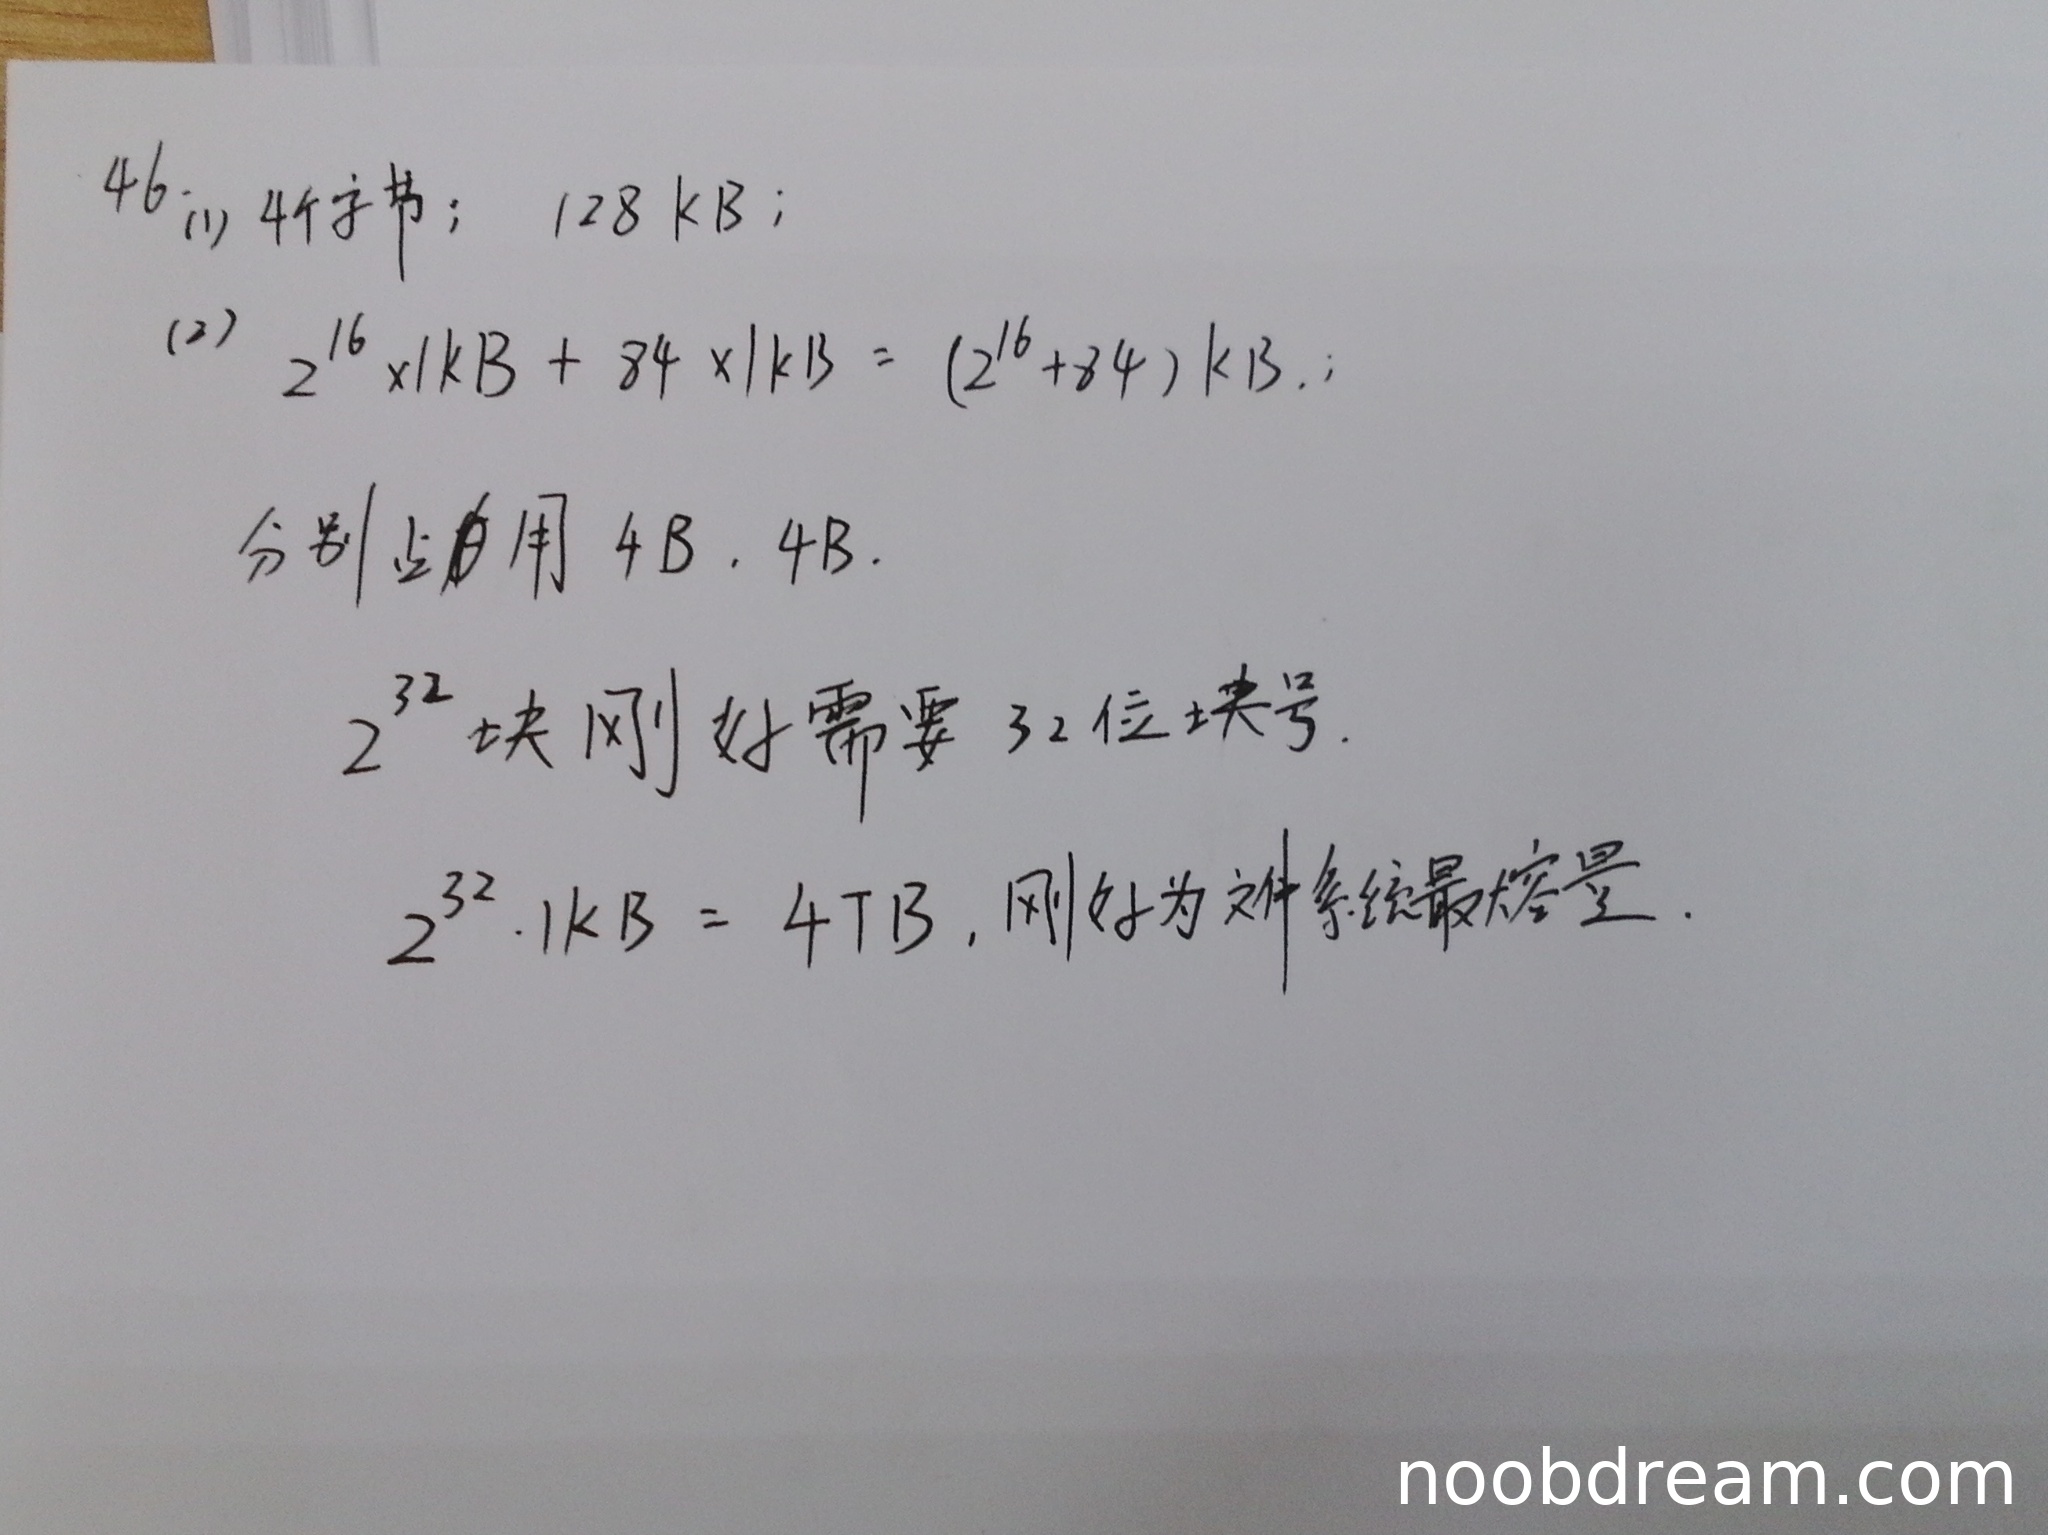 46.(1) 4个字节; 128KB;
(2) 2^16 ×1KB + 84 ×1KB = (2^16+84)KB.;
分别占用 4B, 4B.
2^32 块刚好需要 32位块号.
2^32 · 1KB = 4TB, 刚好为文件系统最大容量.
noobdream.com